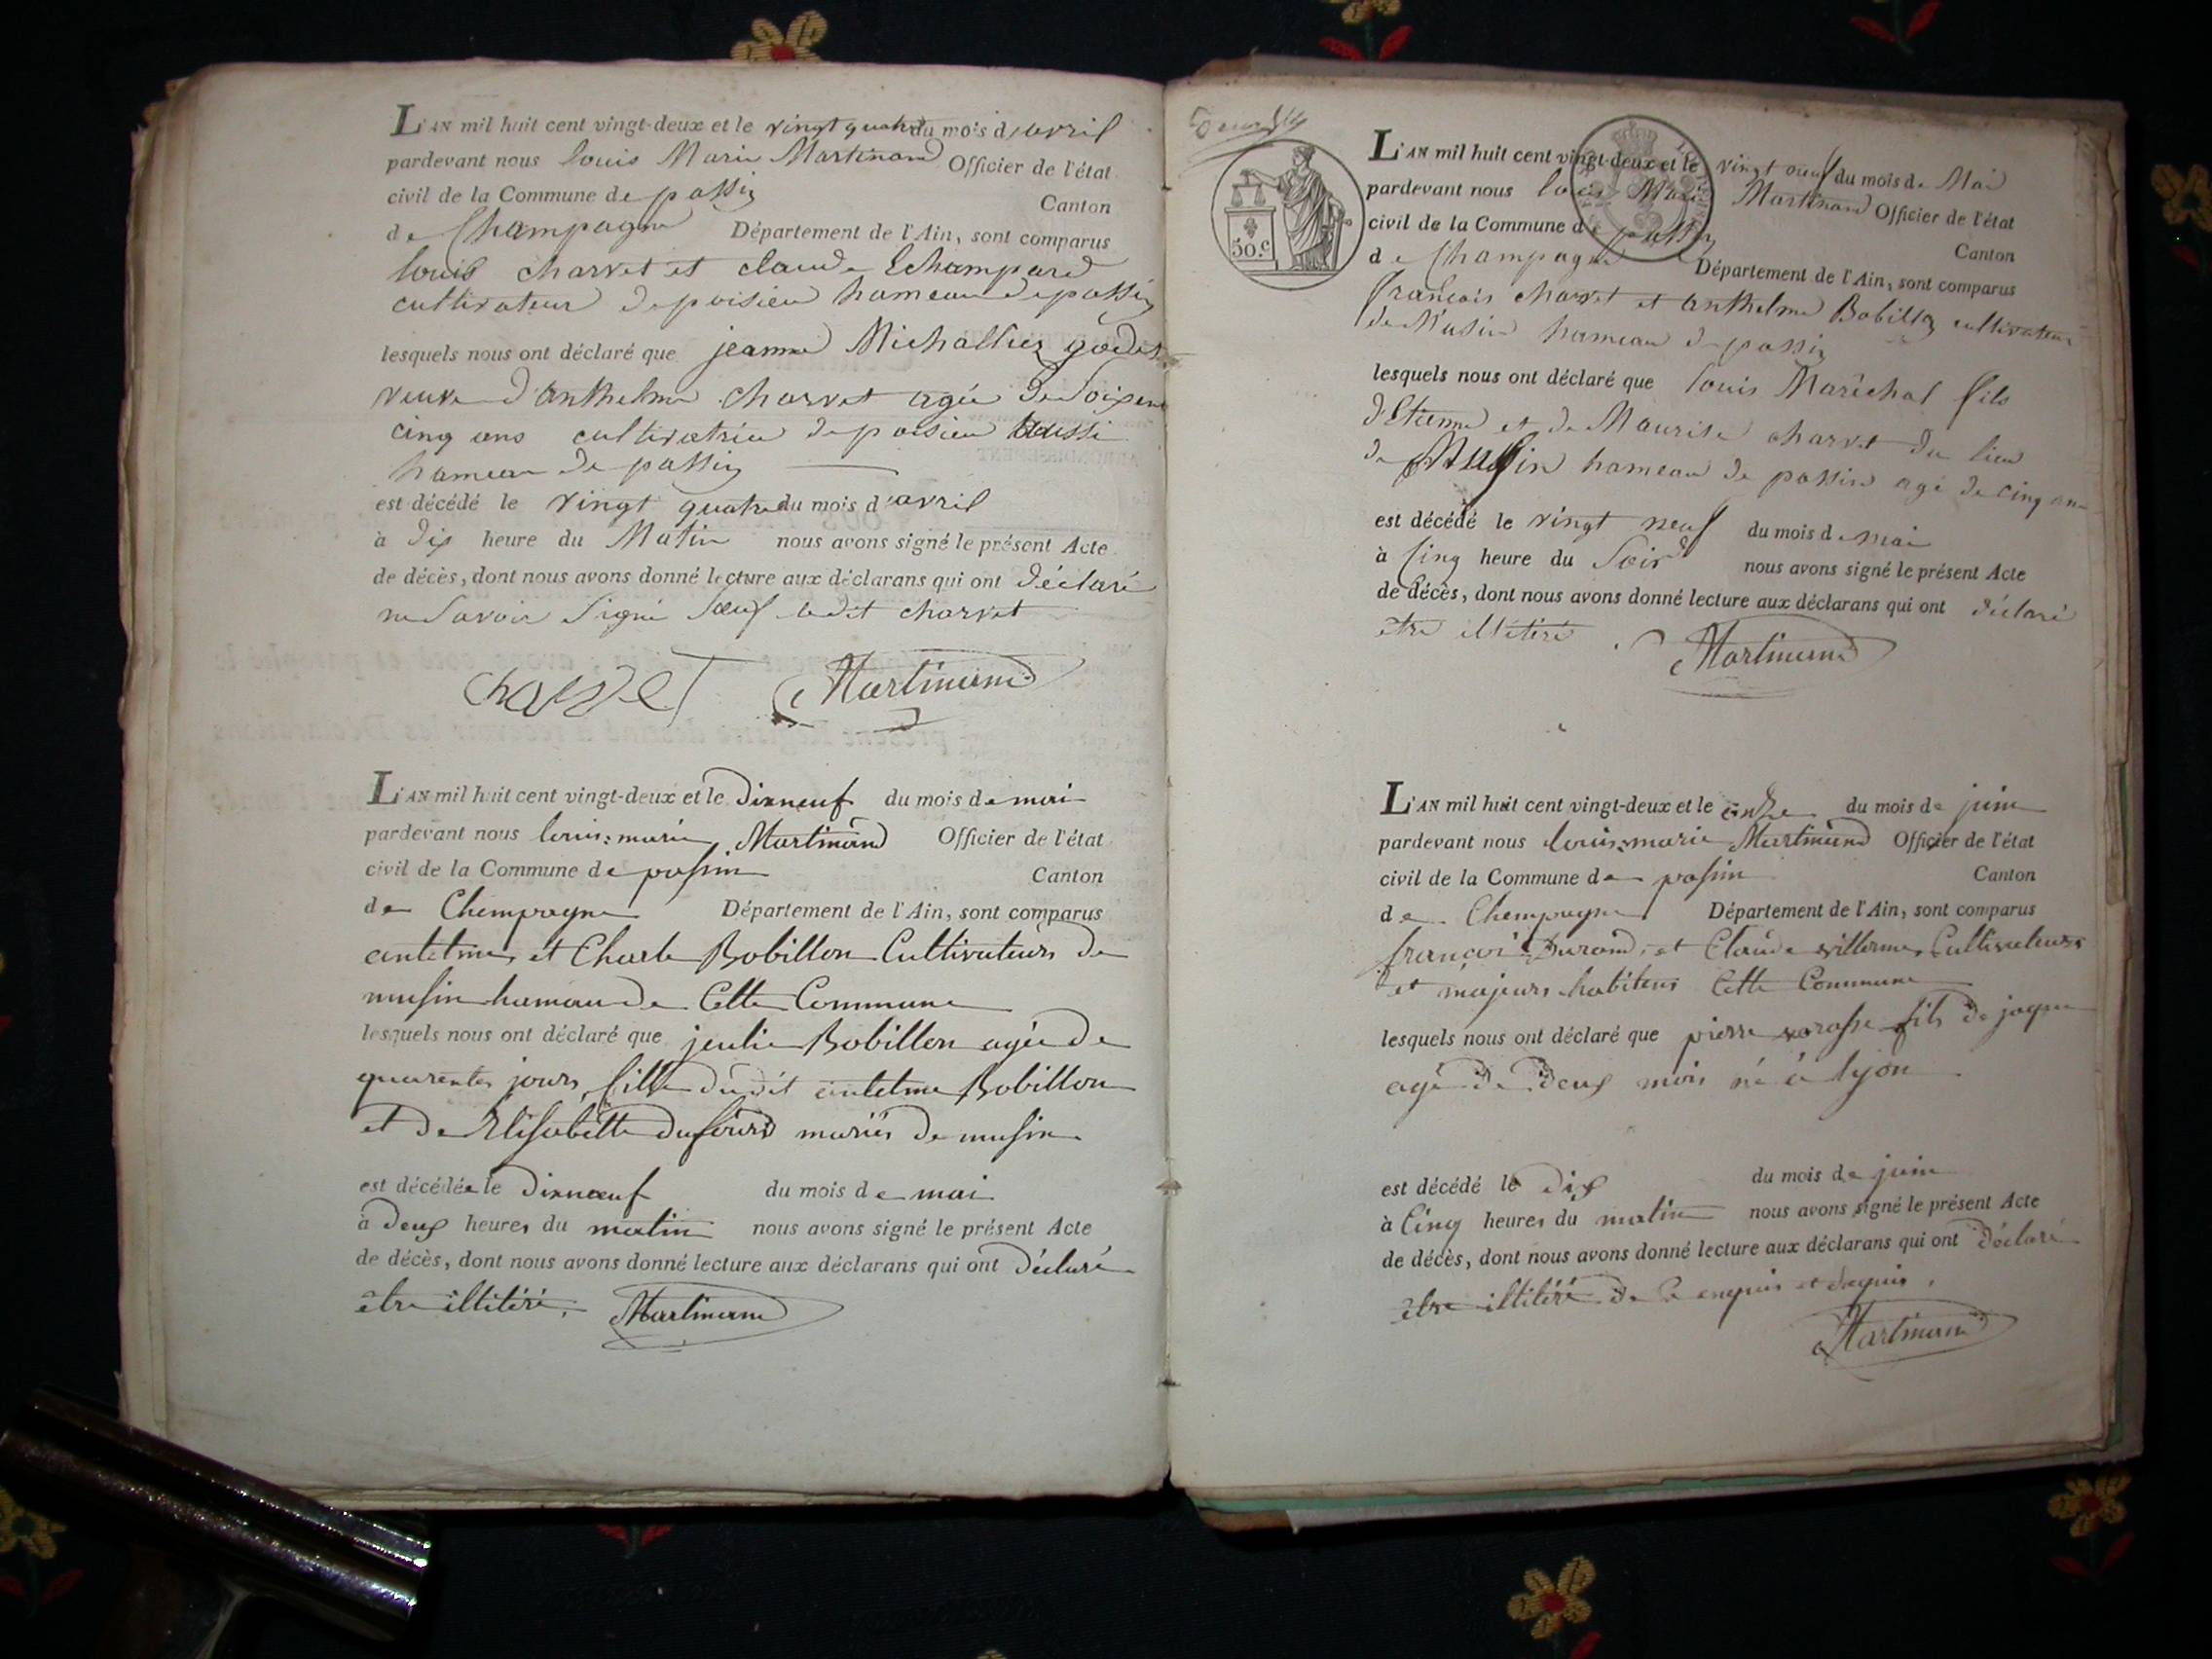 L'AN mil huit cent vingt-deux et le vingt quatre du mois d'avril
pardevant nous louis Marie Martinand Officier de l'état
civil de la Commune de passin
Canton
de Champagne Département de l'Ain, sont comparus
louis charvet et claude Echampard
cultivateur de poisieu hameau de passin
lesquels nous ont déclaré que jeanne Michallier
veuve d'anthelme charvet agée de
cinq ans cultivatrice de poisieu aussi
hameau de passin
est décédé le vingt quatre du mois d'avril
à dix heure du Matin nous avons signé le présent Acte
de décès, dont nous avons donné lecture aux déclarans qui ont déclaré
ne savoir signé sauf ledit charvet
charvet Martinand
L'AN mil huit cent vingt-deux et le dixneuf du mois de mai
pardevant nous louis-marie Martinand Officier de l'état
civil de la Commune de passin
Canton
de Champagne Département de l'Ain, sont comparus
antelme et Charle Bobillon Cultivateurs de
musin hamau de Cette Commune
lesquels nous ont déclaré que jeulie Bobillon agée de
quarente jours, fille dudit antelme Bobillon
et de Elisabette dufour mariés de musin
est décédée le dixneuf du mois de mai
à deux heures du matin nous avons signé le présent Acte
de décès, dont nous avons donné lecture aux déclarans qui ont déclaré
être illitéré. Martinand
50.c
L'AN mil huit cent vingt-deux et le vingt neuf du mois de Mai
pardevant nous louis Marie Martinand Officier de l'état
civil de la Commune de passin
Canton
de Champagne Département de l'Ain, sont comparus
françois charvet et anthelme Bobillon cultivateur
de Musin hameau de passin
lesquels nous ont déclaré que louis Maréchal fils
d'Etienne et de Maurise charvet du lieu
de Musin hameau de passin agé de cinq ans
est décédé le vingt neuf du mois de mai
à Cinq heure du Soir nous avons signé le présent Acte
de décès, dont nous avons donné lecture aux déclarans qui ont déclaré
être illétéré. Martinand
L'AN mil huit cent vingt-deux et le onze du mois de juin
pardevant nous louis-marie Martinand Officier de l'état
civil de la Commune de passin
Canton
de Champagne Département de l'Ain, sont comparus
françois Durand, et Claude villerme Cultivateurs
et majeurs habitens Cette Commune
lesquels nous ont déclaré que pierre fils de jaque
agé de deux mois né à lyon
est décédé le dix du mois de juin
à Cinq heures du matin nous avons signé le présent Acte
de décès, dont nous avons donné lecture aux déclarans qui ont déclaré
être illitéré de Ce enquis et
Martinand